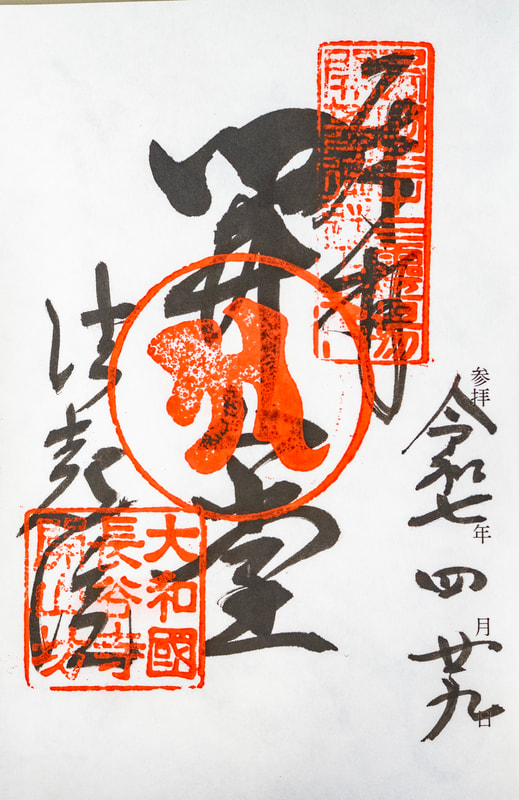 奉拝
西國三十三霊場
開山堂
法起院
大和國
長谷寺
開山坊
参拝 令和七年四月廿九日